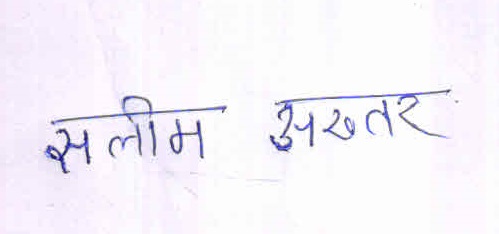 सलीम अख्तर